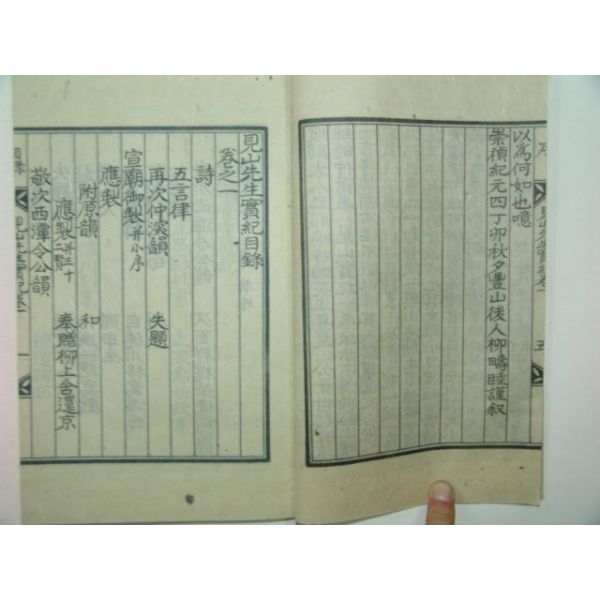 序
五
以爲何如也噫
崇禎紀元四丁卯秋夕豊山後人柳疇睦謹叙
見山先生實紀目錄
卷之一
詩
五言律
再次仲深韻 失題
宣廟御製并小序
應製
附原韻 和
應製
敬次西潭令公韻 奉贈柳上舍還京
目錄
見山先生實紀卷一
一